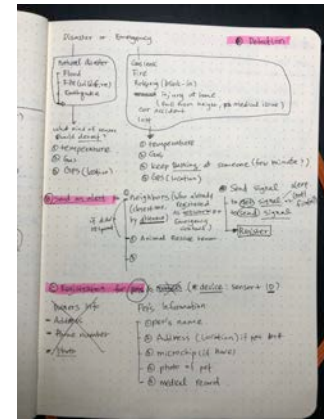 Disaster or Emergency
Ⓐ Detection
Natural disaster
- Flood
- Fire (wildfire)
- Earthquake
Gas leak
Fire
Robbery (break-in)
injury at home
(fall from height, medical issue)
car accident
Lost
what kind of sensor
should detect?
① temperature
② Gas
③ GPS (location)
① temperature
② Gas
③ keep barking at someone (few minute?)
④ GPS (location)
Ⓑ Send an alert
① Neighbours (who already
registered
as
Emergency
contact)
by distance
if didn't
respond
② Animal Rescue
③
Send signal
to get signal
to send signal
Register
Ⓒ Registration for pets (* device: sensor + ID)
Owners Info
- Address
- Phone number
- Photo
Pet's Information
① pet's name
② Address (Location) if you
③ microchip (if have)
④ photo of pet
⑤ medical record